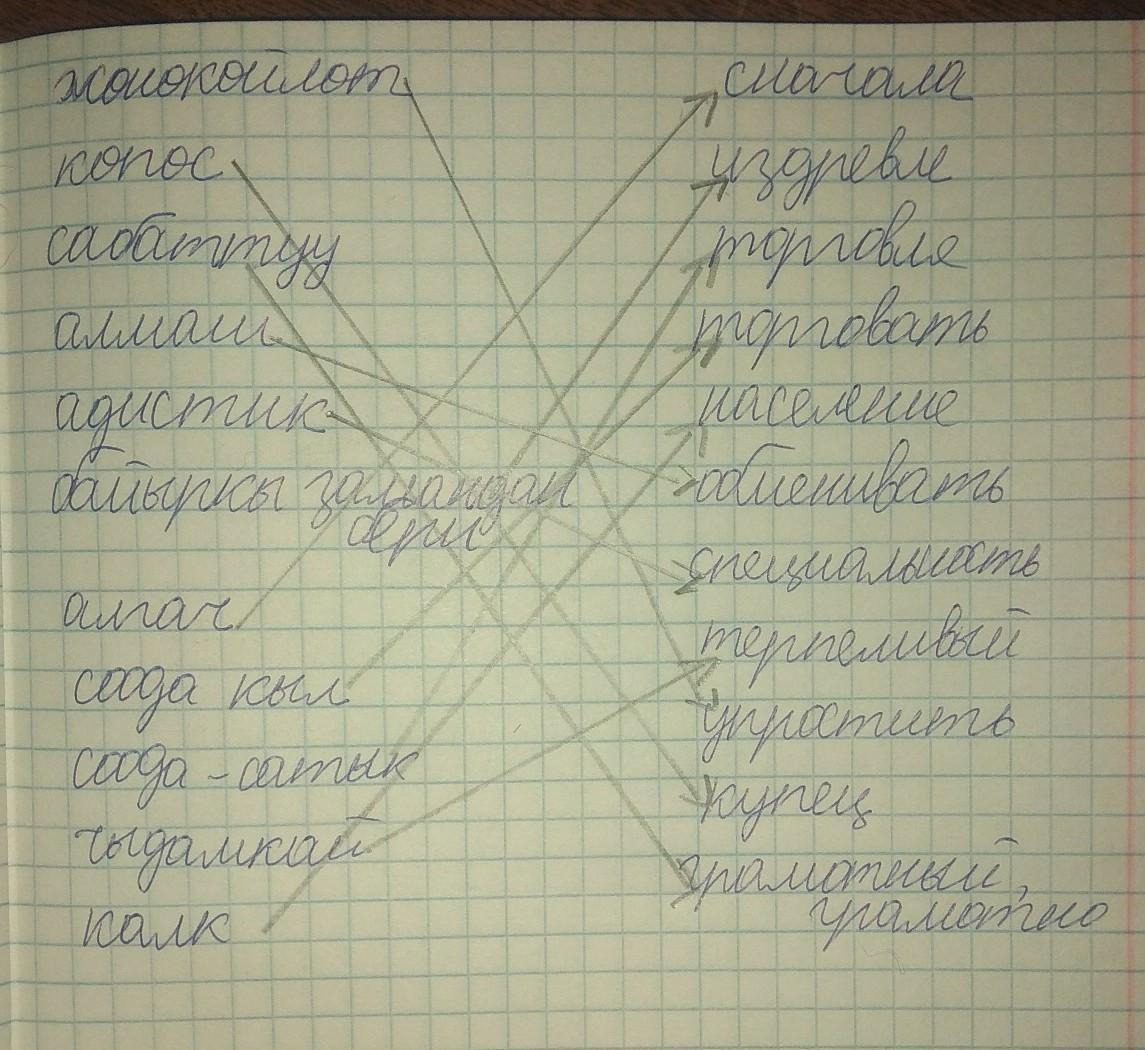 жонокойлот
копос
сабаттуу
алмаш
адистик
байыркы замандан
бери
алгач
соода кыл
соода - сатык
чыдамкай
калк
сначала
издревле
торговля
торговать
население
обменивать
специальность
терпеливый
упростить
купец
грамотный,
грамотно